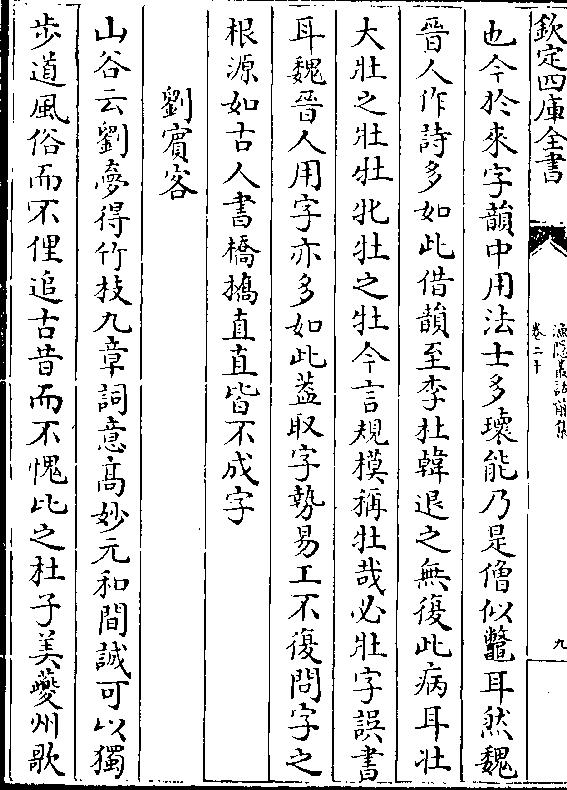 欽定四庫全書
漁隱叢話前集
卷二十
九
也今於來字韻中用法士多瓌能乃是僧似鼈耳然魏
晉人作詩多如此借韻至李杜韓退之無復此病耳壯
大壯之壯牡牝牡之牡今言規模稱牡哉必壯字誤書
耳魏晉人用字亦多如此蓋取字勢易工不復問字之
根源如古人書橋撟直直皆不成字
劉賓客
山谷云劉夢得竹枝九章詞意高妙元和間誠可以獨
步道風俗而不俚追古昔而不愧比之杜子美夔州歌